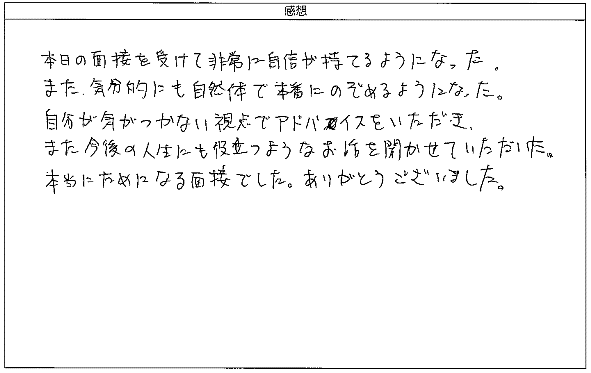 感想
本日の面接を受けて非常に自信が持てるようになった。
また、気分的にも自然体で本番にのぞめるようになった。
自分が気がつかない視点でアドバイスをいただき、
また今後の人生にも役立つようなお話を聞かせていただいた。
本当にためになる面接でした。ありがとうございました。